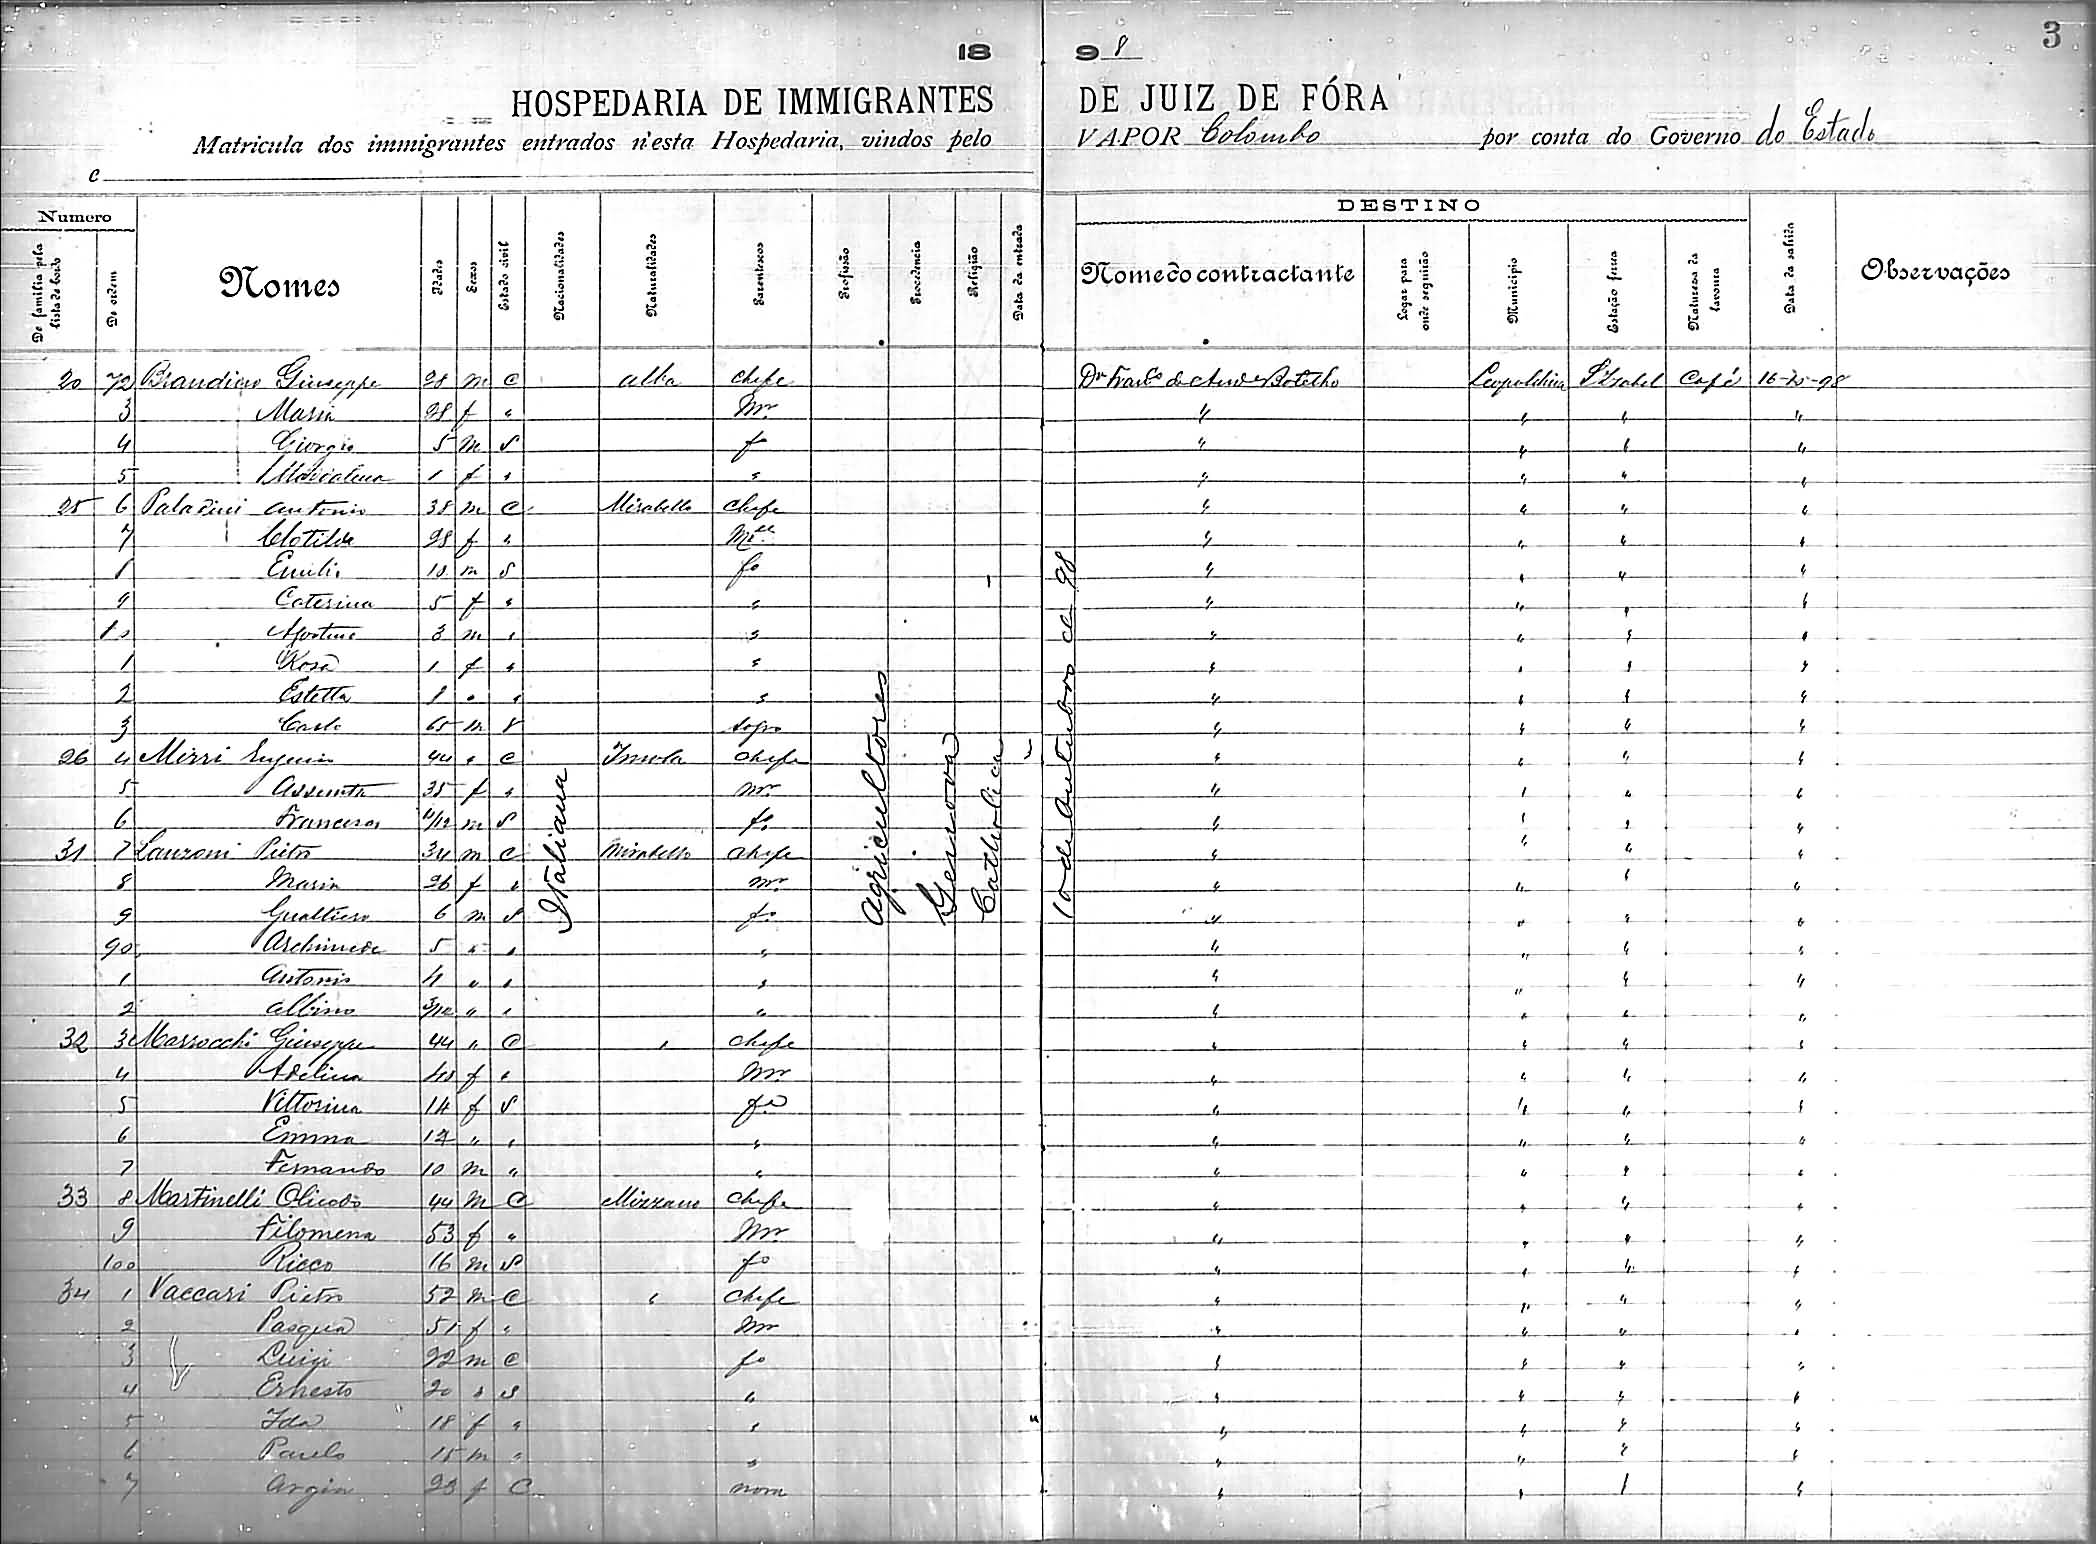 3
18 98
HOSPEDARIA DE IMMIGRANTES DE JUIZ DE FÓRA
Matricula dos immigrantes entrados n'esta Hospedaria, vindos pelo VAPOR Colombo por conta do Governo do Estado
e
Numero DESTINO
De familia pela lista de bordo De ordem Nomes Idades Sexos Estado civil Nacionalidades Naturalidades Parentescos Profissão Procedencia Religião Data da entrada Nome do contractante Logar para onde seguirão Municipio Estação ferrea Natureza da lavoura Data da sahida Observações
20 72 Giuseppe 28 m C alba chefe Botelho Leopoldina Café
3 Maria 28 f " mr " " " "
4 Giorgio 5 m S fo " " " "
5 1 f " " " " " "
25 6 Paladini Antonio 38 m C Mirabello chefe " " " "
7 Clotilde 28 f " " " " "
8 Emilio 10 m S fo " " " "
9 Caterina 5 f " " " " " "
10 3 m " " " " " "
1 Rosa 1 f " " " " " "
2 Estella 1 " " " " " " "
3 Carlo 65 m sogro " " " "
26 4 Mizzi Eugenio 44 " C chefe " " " "
5 Assunta 35 f " mr " " " "
6 m S fo " " " "
31 7 Lanzoni Pietro 34 m C Mirabello chefe " " " "
8 Maria 26 f " mr " " " "
9 Gualtiero 6 m S fo " " " "
90 Archimede 5 " " " " " " "
1 Antonio 4 " " " " " " "
2 Albino 3/12 " " " " " " "
32 3 Giuseppe 44 " C " chefe " " " "
4 Adelina 40 f " mr " " " "
5 Vittorina 14 f S fa " " " "
6 Emma 12 " " " " " " "
7 Fernando 10 m " " " " " "
33 8 Martinelli 44 m C Mizzano chefe " " " "
9 Filomena 53 f " mr " " " "
100 Ricco 16 m S fo " " " "
34 1 Vaccari Pietro 52 m C " chefe " " " "
2 Pasqua 51 f " mr " " " "
3 Luigi 22 m C fo " " " "
4 Ernesto 20 " S " " " " "
5 Ida 18 f " " " " " "
6 Paulo 15 m " " " " " "
7 Argia 23 f C nora " " " "
Italiana
Agricultores
Genova
Catholica
10 de Outubro de 98